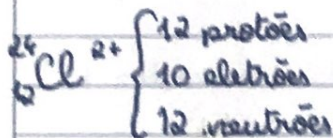 ²⁴₁₂Cl ²⁺ { 12 protões
10 eletrões
12 neutrões